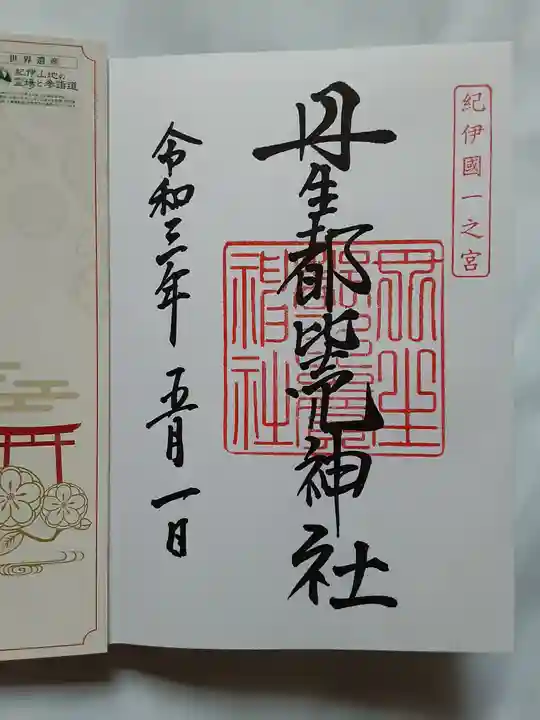 紀伊國一之宮
丹生都比売神社
令和三年 五月一日
世界遺産
紀伊山地の
霊場と参詣道